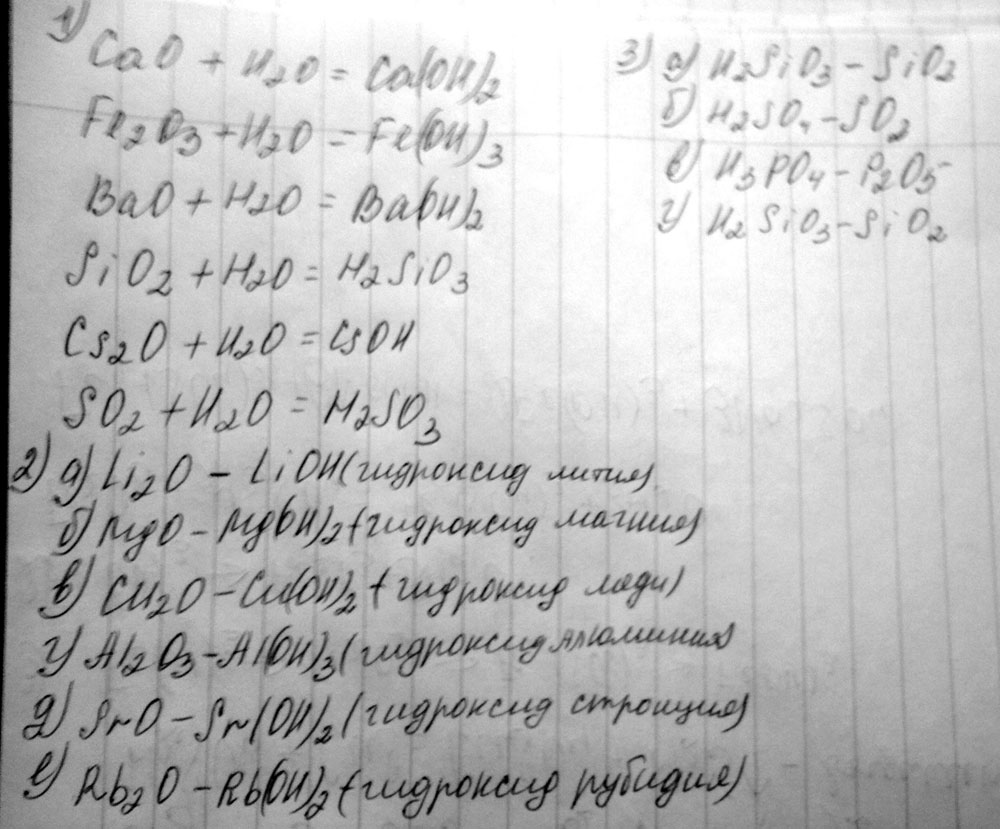 1)
CaO + H2O = Ca(OH)2
Fe2O3 + H2O = Fe(OH)3
BaO + H2O = Ba(OH)2
SiO2 + H2O = H2SiO3
Cs2O + H2O = CsOH
SO2 + H2O = H2SO3
2) а) Li2O – LiOH (гидроксид лития)
б) MgO – Mg(OH)2 (гидроксид магния)
в) Cu2O – Cu(OH)2 (гидроксид меди)
г) Al2O3 – Al(OH)3 (гидроксид алюминия
д) SrO – Sr(OH)2 (гидроксид стронция)
е) Rb2O – Rb(OH)2 (гидроксид рубидия)
3) а) H2SiO3 – SiO2
б) H2SO4 – SO2
в) H3PO4 – P2O5
г) H2SiO3 – SiO2